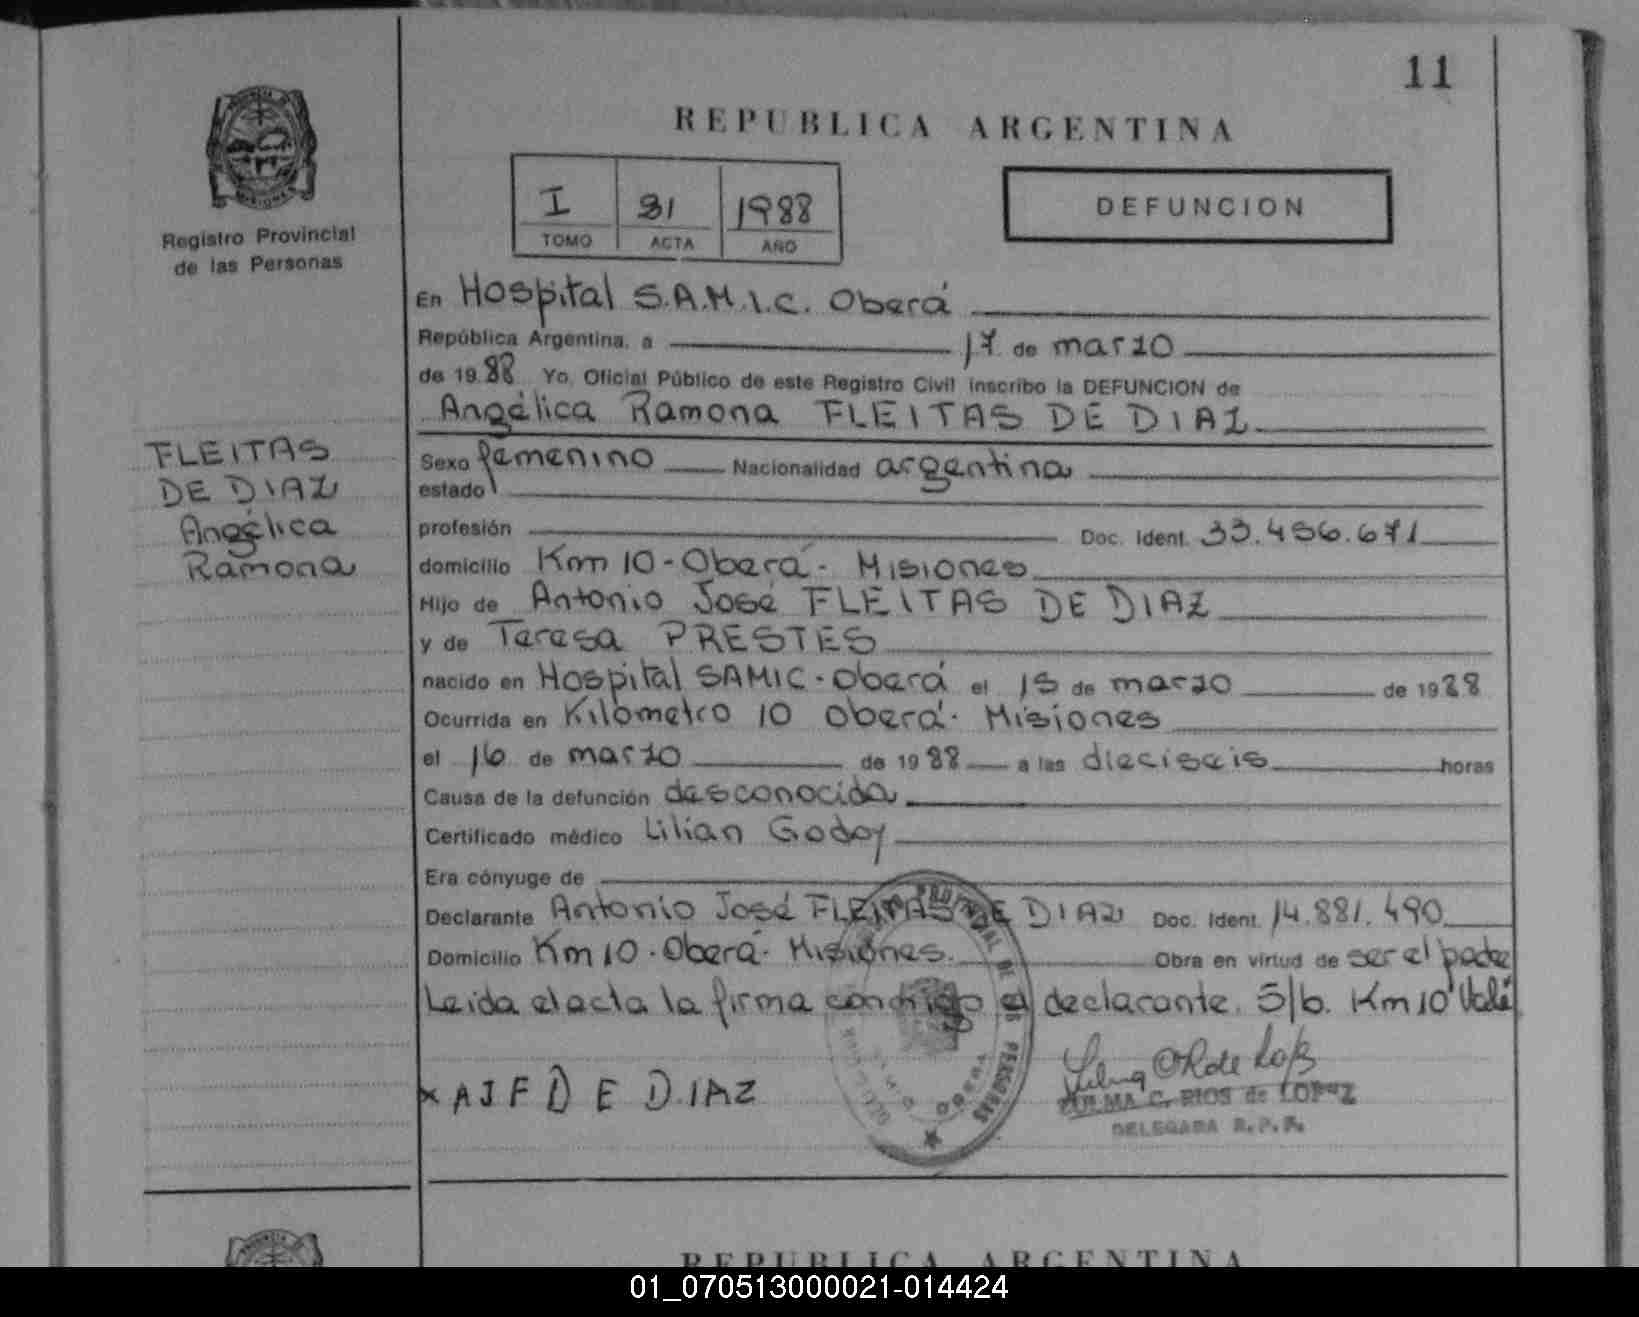 11
REPUBLICA ARGENTINA
I 31 1988
TOMO ACTA AÑO
DEFUNCION
Registro Provincial
de las Personas
En Hospital S.A.M.I.C. Oberá
República Argentina, a 17 de marzo
de 1988 Yo, Oficial Público de este Registro Civil inscribo la DEFUNCION de
Angélica Ramona FLEITAS DE DIAZ
FLEITAS
DE DIAZ
Angélica
Ramona
Sexo femenino Nacionalidad argentina
estado
profesión Doc. Ident. 33.456.671
domicilio Km 10-Oberá- Misiones
Hijo de Antonio José FLEITAS DE DIAZ
y de Teresa PRESTES
nacido en Hospital SAMIC-Oberá el 15 de marzo de 1988
Ocurrida en Kilómetro 10 Oberá- Misiones
el 16 de marzo de 1988 a las dieciseis horas
Causa de la defunción desconocida
Certificado médico Lilian Godoy
Era cónyuge de
Declarante Antonio José FLEITAS DE DIAZ Doc. Ident. 14.881.490
Domicilio Km 10-Oberá- Misiones. Obra en virtud de ser el padre
Leida el acta la firma conmigo el declarante. S/b. Km 10 Vale
x AJF DE DIAZ
ZULMA C. RIOS de LOPEZ
DELEGADA R.P.P.
PROVINCIAL DE LAS PERSONAS
REPUBLICA ARGENTINA
01_070513000021-014424